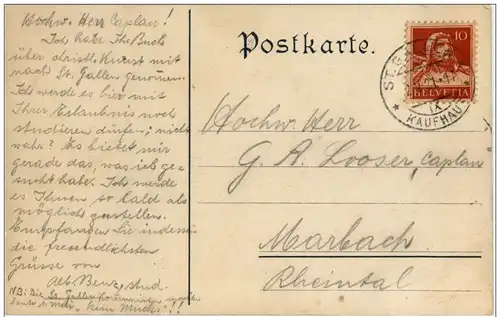 Hochw. Herr Caplan!
Ich habe Ihr Buch
über christl. Kunst mit
nach St. Gallen genommen.
Ich werde es hier mit
Ihrer Erlaubnis noch
studieren dürfen; nicht
wahr? Es bietet mir
gerade das, was ich ge-
sucht habe. Ich werde
es Ihnen so bald als
möglich zustellen.
Empfangen Sie indessen
die freundlichsten
Grüsse von
Alb. Benz, stud.
NB: Die St. Galler
Postkarte.
10
HELVETIA
ST. GALLEN
IX
* KAUFHAUS *
Hochw. Herr
G. A. Looser, Caplan
Marbach
Rheintal